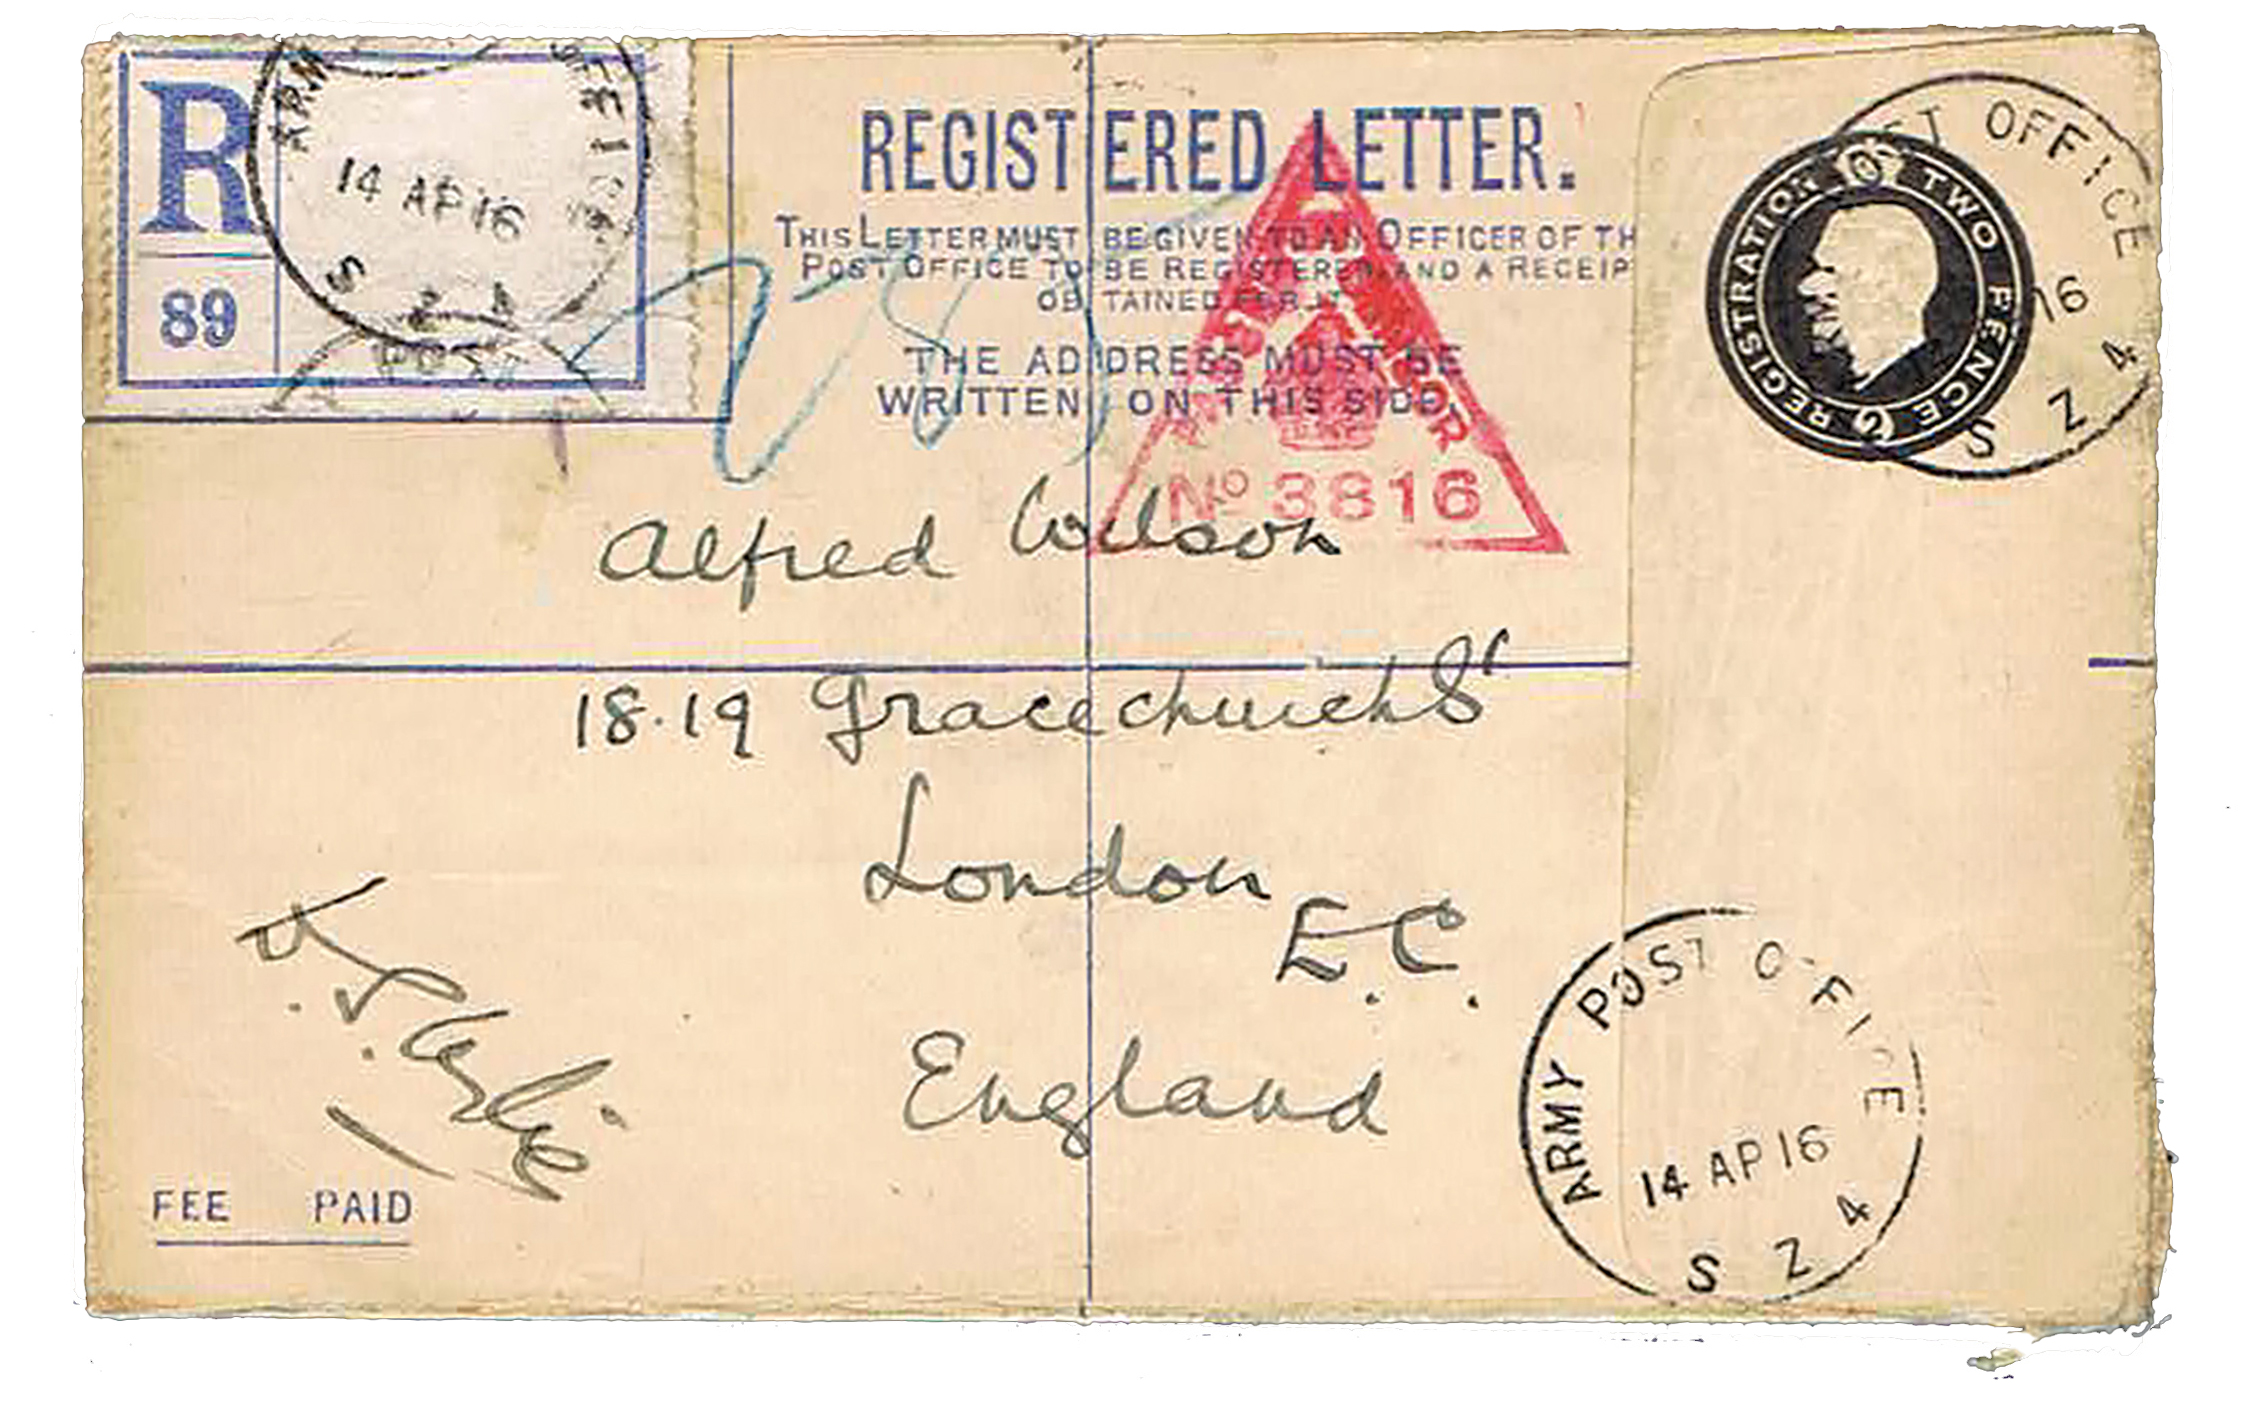 R
89
ARM FFICE
14 AP 16
S Z 4
REGISTERED LETTER.
THIS LETTER MUST BE GIVEN TO AN OFFICER OF TH
POST OFFICE TO BE REGISTERED AND A RECEIP
OBTAINED FOR IT
THE ADDRESS MUST BE
WRITTEN ON THIS SIDE.
Nº 3816
REGISTRATION TWO PENCE 2
ST OFFICE
16
S Z 4
Alfred Wilson
18.19 Gracechurch Sᵗ
London
E.C.
England
FEE PAID
ARMY POST OFFICE
14 AP 16
S Z 4